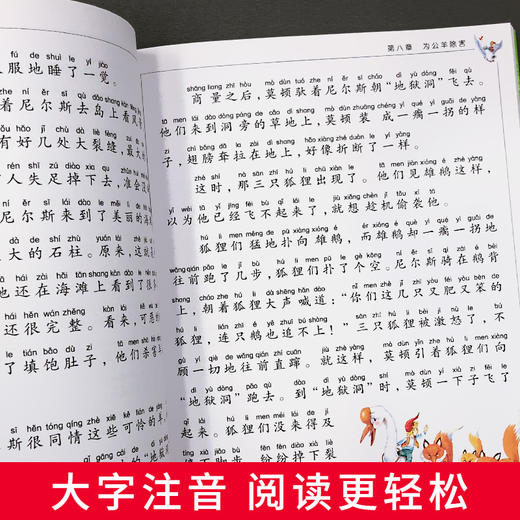 fú de shuì le yí jiào
服地睡了一觉。
着尼尔斯去岛上看风
yǒu hǎo jǐ chù dà liè fèng
有好几处大裂缝，最大
rén shī zú diào xia qù zhǔn huì
人失足掉下去，准会没
ní ěr sī lái dào le měi lì de hǎi
尼尔斯来到了美丽的海
dà de shí zhù yuán lái zhè
大的石柱。原来，这就
tā hái zài hǎi tān shang kàn dào
他还在海滩上看到
hái hěn wán zhěng kàn lái
还很完整。看来，可恶
le tián bǎo dù zi tā men
了填饱肚子，他们杀害
sī hěn tóng qíng zhè xiē kě lián de
斯很同情这些可怜的羊
第八章 为公羊除害
shāng liang zhī hòu mò dùn tuó zhe ní ěr sī cháo dì yù dòng fēi qù
商量之后，莫顿驮着尼尔斯朝“地狱洞”飞去。
tā men lái dào dòng páng de cǎo dì shang mò dùn zhuāng chéng yì qué yì guǎi de yàng
他们来到洞旁的草地上，莫顿装成一瘸一拐的样
zi chì bǎng dā lā zài dì shang hǎo xiàng zhé duàn le yí yàng
子，翅膀耷拉在地上，好像折断了一样。
zhè shí nà sān zhī hú li chū xiàn le tā men jiàn xióng é zhè yàng
这时，那三只狐狸出现了。他们见雄鹅这样，
yǐ wéi tā yǐ jīng fēi bù qǐ lái le jiù xiǎng chèn jī tōu xí tā
以为他已经飞不起来了，就想趁机偷袭他。
hú li men měng de pū xiàng xióng é ér xióng é què yì qué yì guǎi de
狐狸们猛地扑向雄鹅，而雄鹅却一瘸一拐地
wǎng qián pǎo le jǐ bù hú li men pū le gè kōng ní ěr sī qí zài é bèi
往前跑了几步，狐狸们扑了个空。尼尔斯骑在鹅背
shang cháo zhe hú li dà shēng hǎn dào nǐ men zhè jǐ zhī yòu féi yòu bèn de
上，朝着狐狸大声喊道：“你们这几只又肥又笨的
hú li lián zhī é yě zhuī bú shàng sān zhī hú li bèi jī nù le bú
狐狸，连只鹅也追不上！”三只狐狸被激怒了，不
gù yí qiè de wǎng qián zhí cuān jiù zhè yàng mò dùn yǐn zhe hú li men xiàng
顾一切地往前直蹿。就这样，莫顿引着狐狸们向
dì yù dòng pǎo qù dào dì yù dòng shí mò dùn yí xià zi fēi le
“地狱洞”跑去。到“地狱洞”时，莫顿一下子飞了
qǐ lái hú li men méi lái de jí
起来。狐狸们没来得及
纷纷掉下裂
大字注音 阅读更轻松